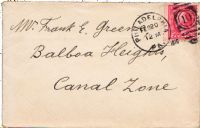 Mr. Frank E. Greene
Balboa Heights,
Canal Zone
PHILADELPHIA
12 M
PA.